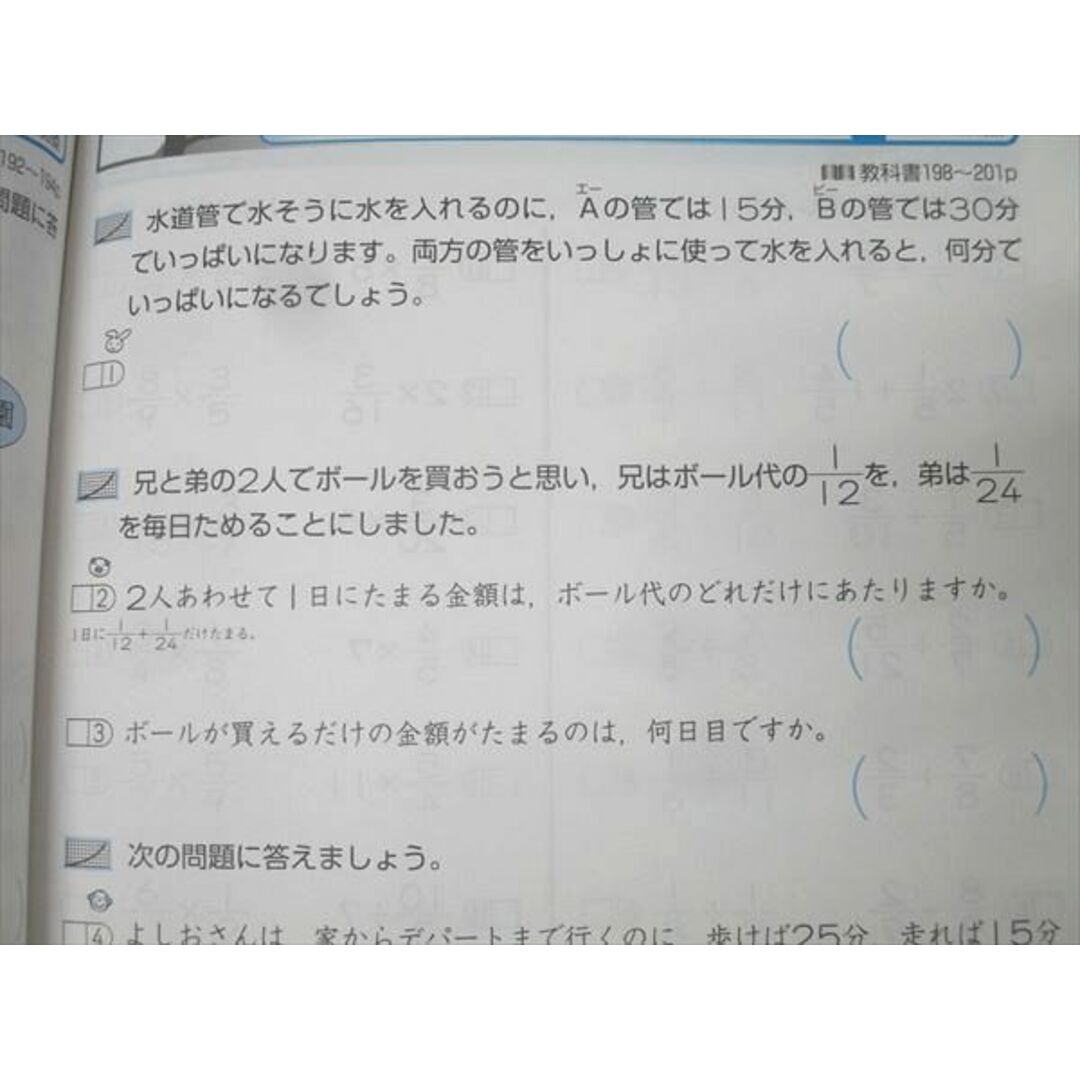 192〜194p
問題に答
教科書198〜201p
水道管で水そうに水を入れるのに，Aの管では15分，Bの管では30分
エー
ビー
でいっぱいになります。両方の管をいっしょに使って水を入れると，何分で
いっぱいになるでしょう。
1
( )
兄と弟の2人でボールを買おうと思い，兄はボール代の1/12を，弟は1/24
を毎日ためることにしました。
2 2人あわせて1日にたまる金額は，ボール代のどれだけにあたりますか。
1日に1/12+1/24だけたまる。
( )
3 ボールが買えるだけの金額がたまるのは，何日目ですか。
( )
次の問題に答えましょう。
4 よしおさんは，家からデパートまで行くのに，歩けば25分，走れば15分